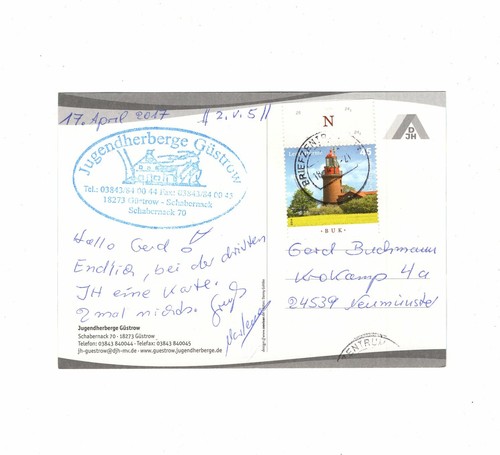 17. April 2017
// 2. v. 5 //
N
Jugendherberge Güstrow
Tel.: 03843/84 00 44 Fax: 03843/84 00 45
18273 Güstrow - Schabernack
Schabernack 70
BRIEFZENTRUM
45
BUK
DJH
Hallo Gerd
Endlich, bei der dritten
JH eine Karte.
2 mal nichts. Gruß
Gerd Bachmann
Krokamp 4a
24539 Neumünster
Jugendherberge Güstrow
Schabernack 70 · 18273 Güstrow
Telefon: 03843 840044 · Telefax: 03843 840045
jh-guestrow@djh-mv.de · www.guestrow.jugendherberge.de
ZENTRUM